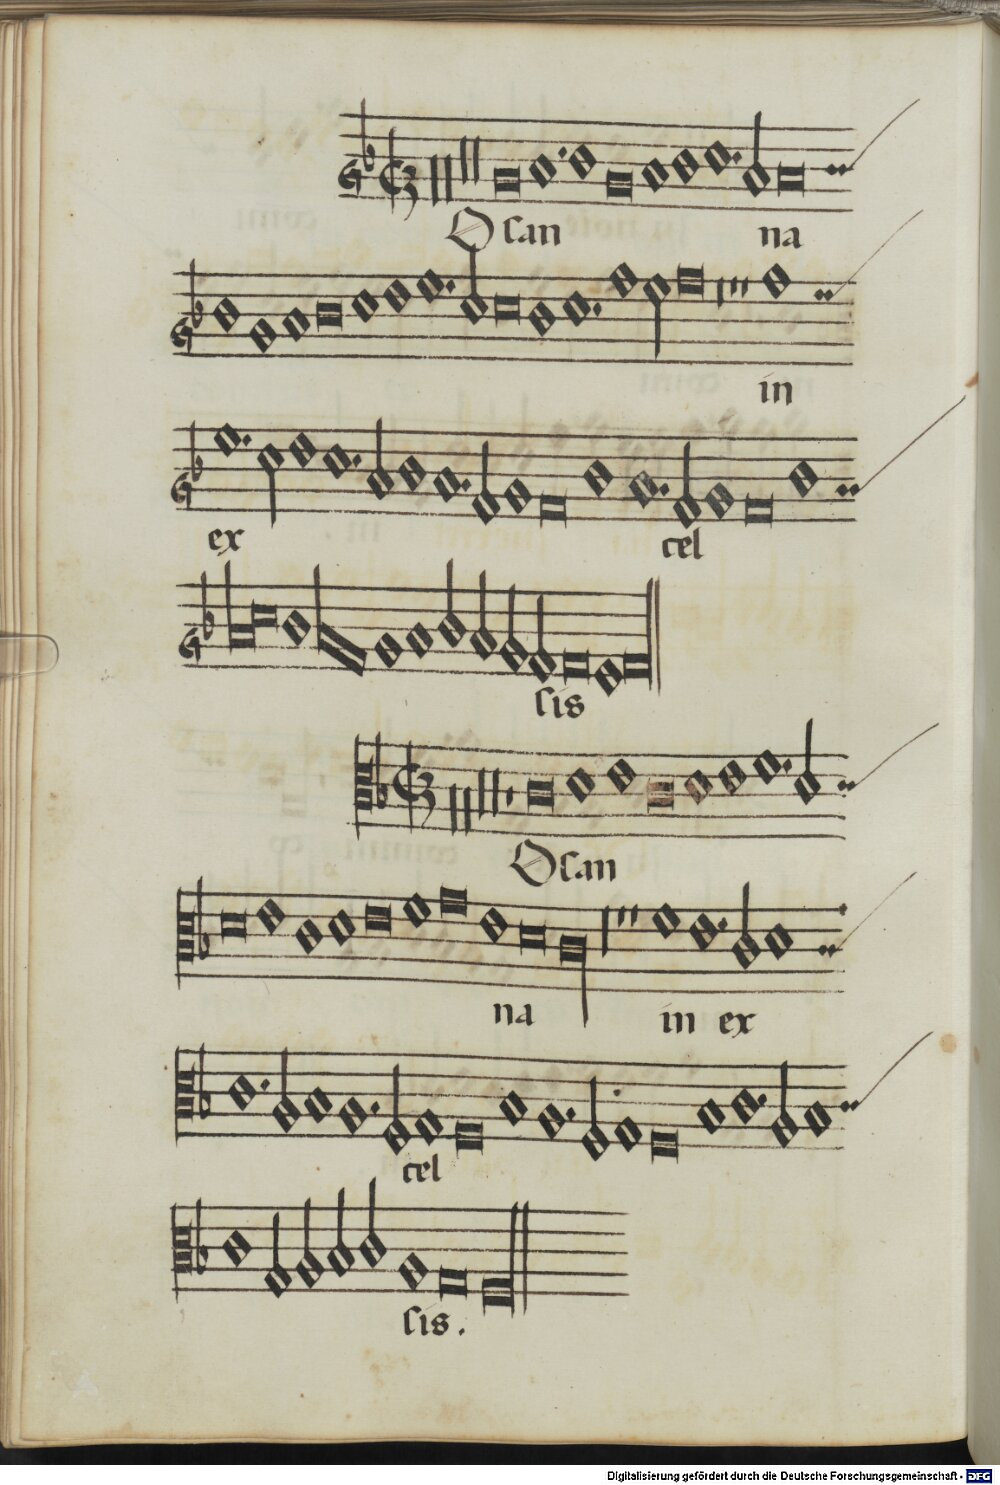 Osan na
in
ex cel
sis
Osan
na in ex
cel
sis.
Digitalisierung gefördert durch die Deutsche Forschungsgemeinschaft - DFG